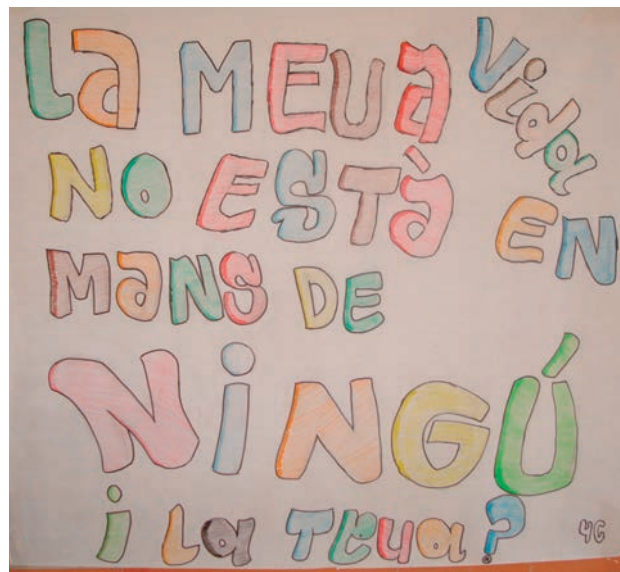 La MEUa Vida
NO ESTà EN
MaNS DE
NiNGÚ
i La Teua?
4C